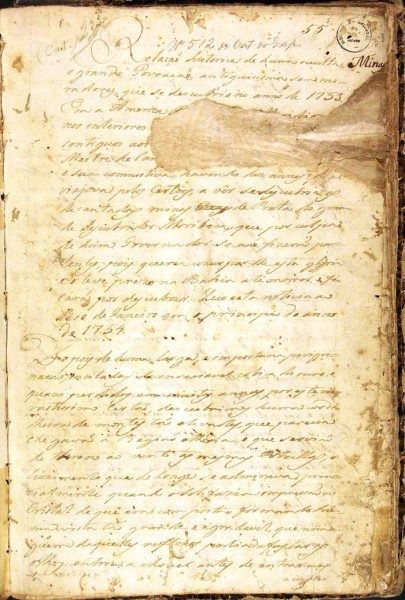 55
(Cat.
Nº 512 do Cat. de Exp.
Minas
Relação historica de huma occulta,
e grande Povoação, antiquissima sem mo-
radores, que se descubriu no anno de 1753
Em a America
nos interiores
contiguos aos
Mestre de Can
e sua comitiva, havendo dez annos, que
viajava pelos certoẽs, a vêr se descubria as
decantadas minas de Prata do gran
de descubridor Moribeca, que por culpa
de hum Governador se naõ fizeraõ pa-
tentes, pois queria uzurparlhe esta gloria,
e o teve prezo na Bahia até morrer, e fi-
caraõ por descubrir. Veio esta noticia ao
Rio de Janeiro em o principio do anno
de 1754.
Depois de huma longa, e importuna perigri-
naçaõ, incitados da insaciavel cobiça de ouro, e
quazi perdidos em muitos annos por este vas-
tissimo Certaõ, descubrimos huma cordi-
lheira de montes taõ elevados, que parecia
chegavaõ á Regiaõ etherea, e que serviaõ
de throno ao vento, ás mesmas Estrellas; o
luzimento que de longe se admirava, princi-
palmente quando o Sol fazia impressaõ ao
Cristal de que era composta e formando hu-
ma vista taõ grande, e agradavel, que nin-
guem daquelles reflexos podia afastar os
olhos: entrou a chover antes de entrarmos
a regis